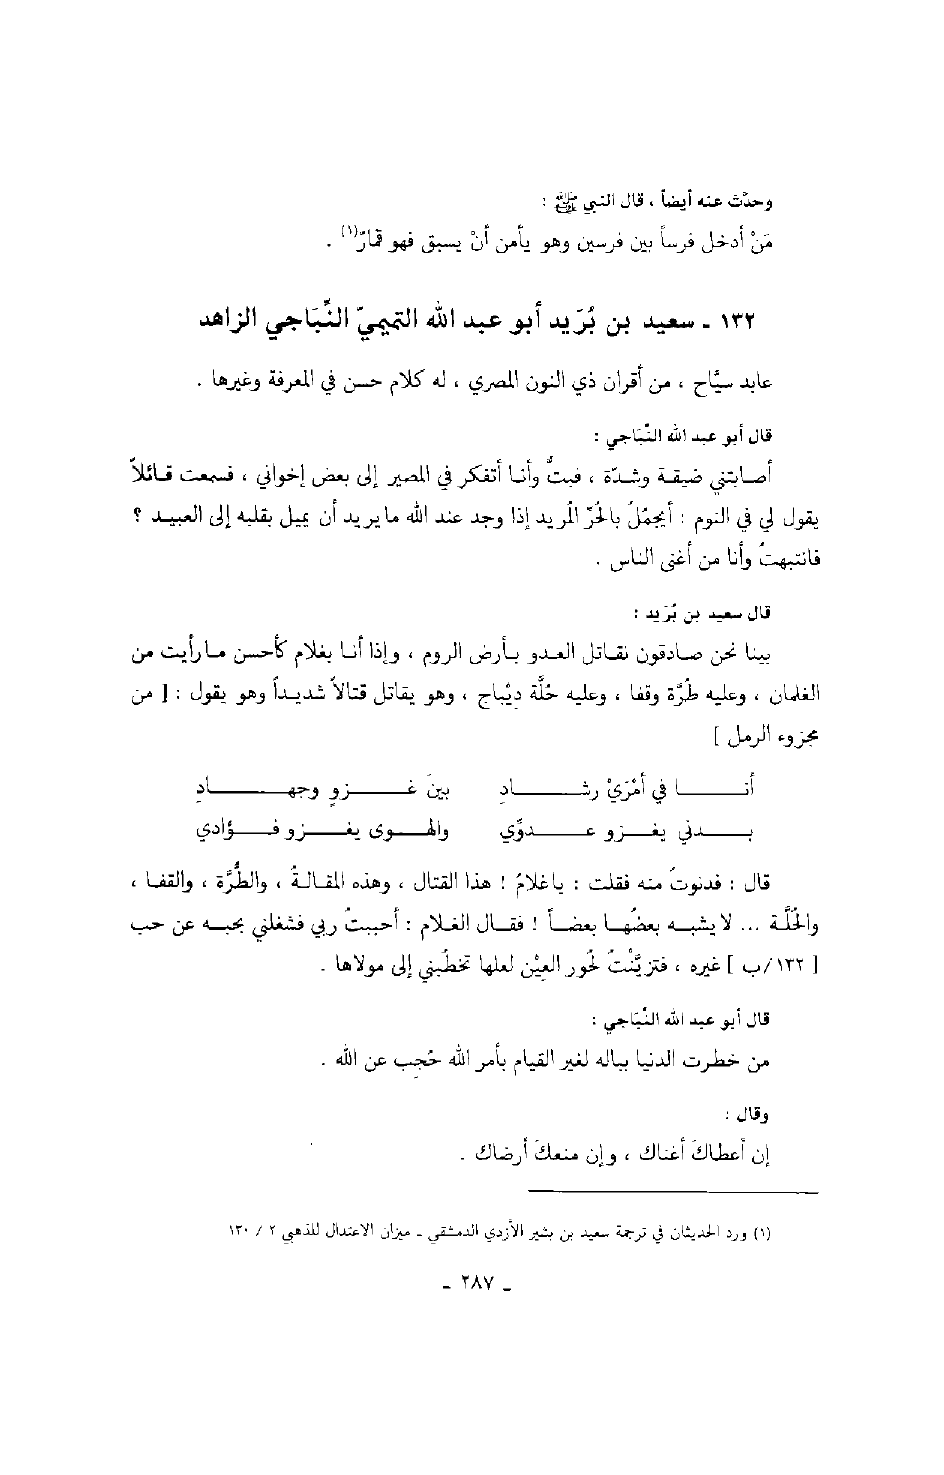 وحدّث عنه أيضاً ، قال النبي ﷺ :
مَنْ أدخل فرساً بين فرسين وهو يأمن أنْ يسبق فهو قمارٌ(١) .
١٣٢ ـ سعيد بن بُرَيد أبو عبد الله التميميّ النِّبَاجي الزاهد
عابد سيَّاح ، من أقران ذي النون المصري ، له كلام حسن في المعرفة وغيرها .
قال أبو عبد الله النُبَاجي :
أصابتني ضيقة وشدّة ، فبتُّ وأنا أتفكر في المصير إلى بعض إخواني ، فسمعت قائلاً
يقول لي في النوم : أيجمُلُ بالحُرّ المريد إذا وجد عند الله ما يريد أن يميل بقلبه إلى العبيد ؟
فانتبهتُ وأنا من أغنى الناس .
قال سعيد بن بُرَيد :
بينا نحن صادقون نقاتل العدو بأرض الروم ، وإذا أنا بغلام كأحسن ما رأيت من
الغلمان ، وعليه طُرَّة وقفا ، وعليه حُلَّة دِيْباج ، وهو يقاتل قتالاً شديداً وهو يقول : [ من
مجزوء الرمل ]
أنا في أمْرَيْ رشادِ بينَ غزوٍ وجهادِ
بدني يغزو عدوِّي والهوى يغزو فؤادي
قال : فدنوتُ منه فقلت : يا غلامُ ! هذا القتال ، وهذه المقالةُ ، والطُّرَّة ، والقفا ،
والحُلَّة ... لا يشبه بعضُها بعضاً ! فقال الغلام : أحببتُ ربي فشغلني بحبه عن حب
[ ١٣٢/ب ] غيره ، فتزيَّنْتُ لحُور العِيْن لعلها تخطُبني إلى مولاها .
قال أبو عبد الله النُبَاجي :
من خطرت الدنيا بباله لغير القيام بأمر الله حُجِب عن الله .
وقال :
إن أعطاكَ أغناك ، وإن منعكَ أرضاك .
(١) ورد الحديثان في ترجمة سعيد بن بشير الأزدي الدمشقي ـ ميزان الاعتدال للذهبي ٢ / ١٣٠
ـ ٢٨٧ ـ